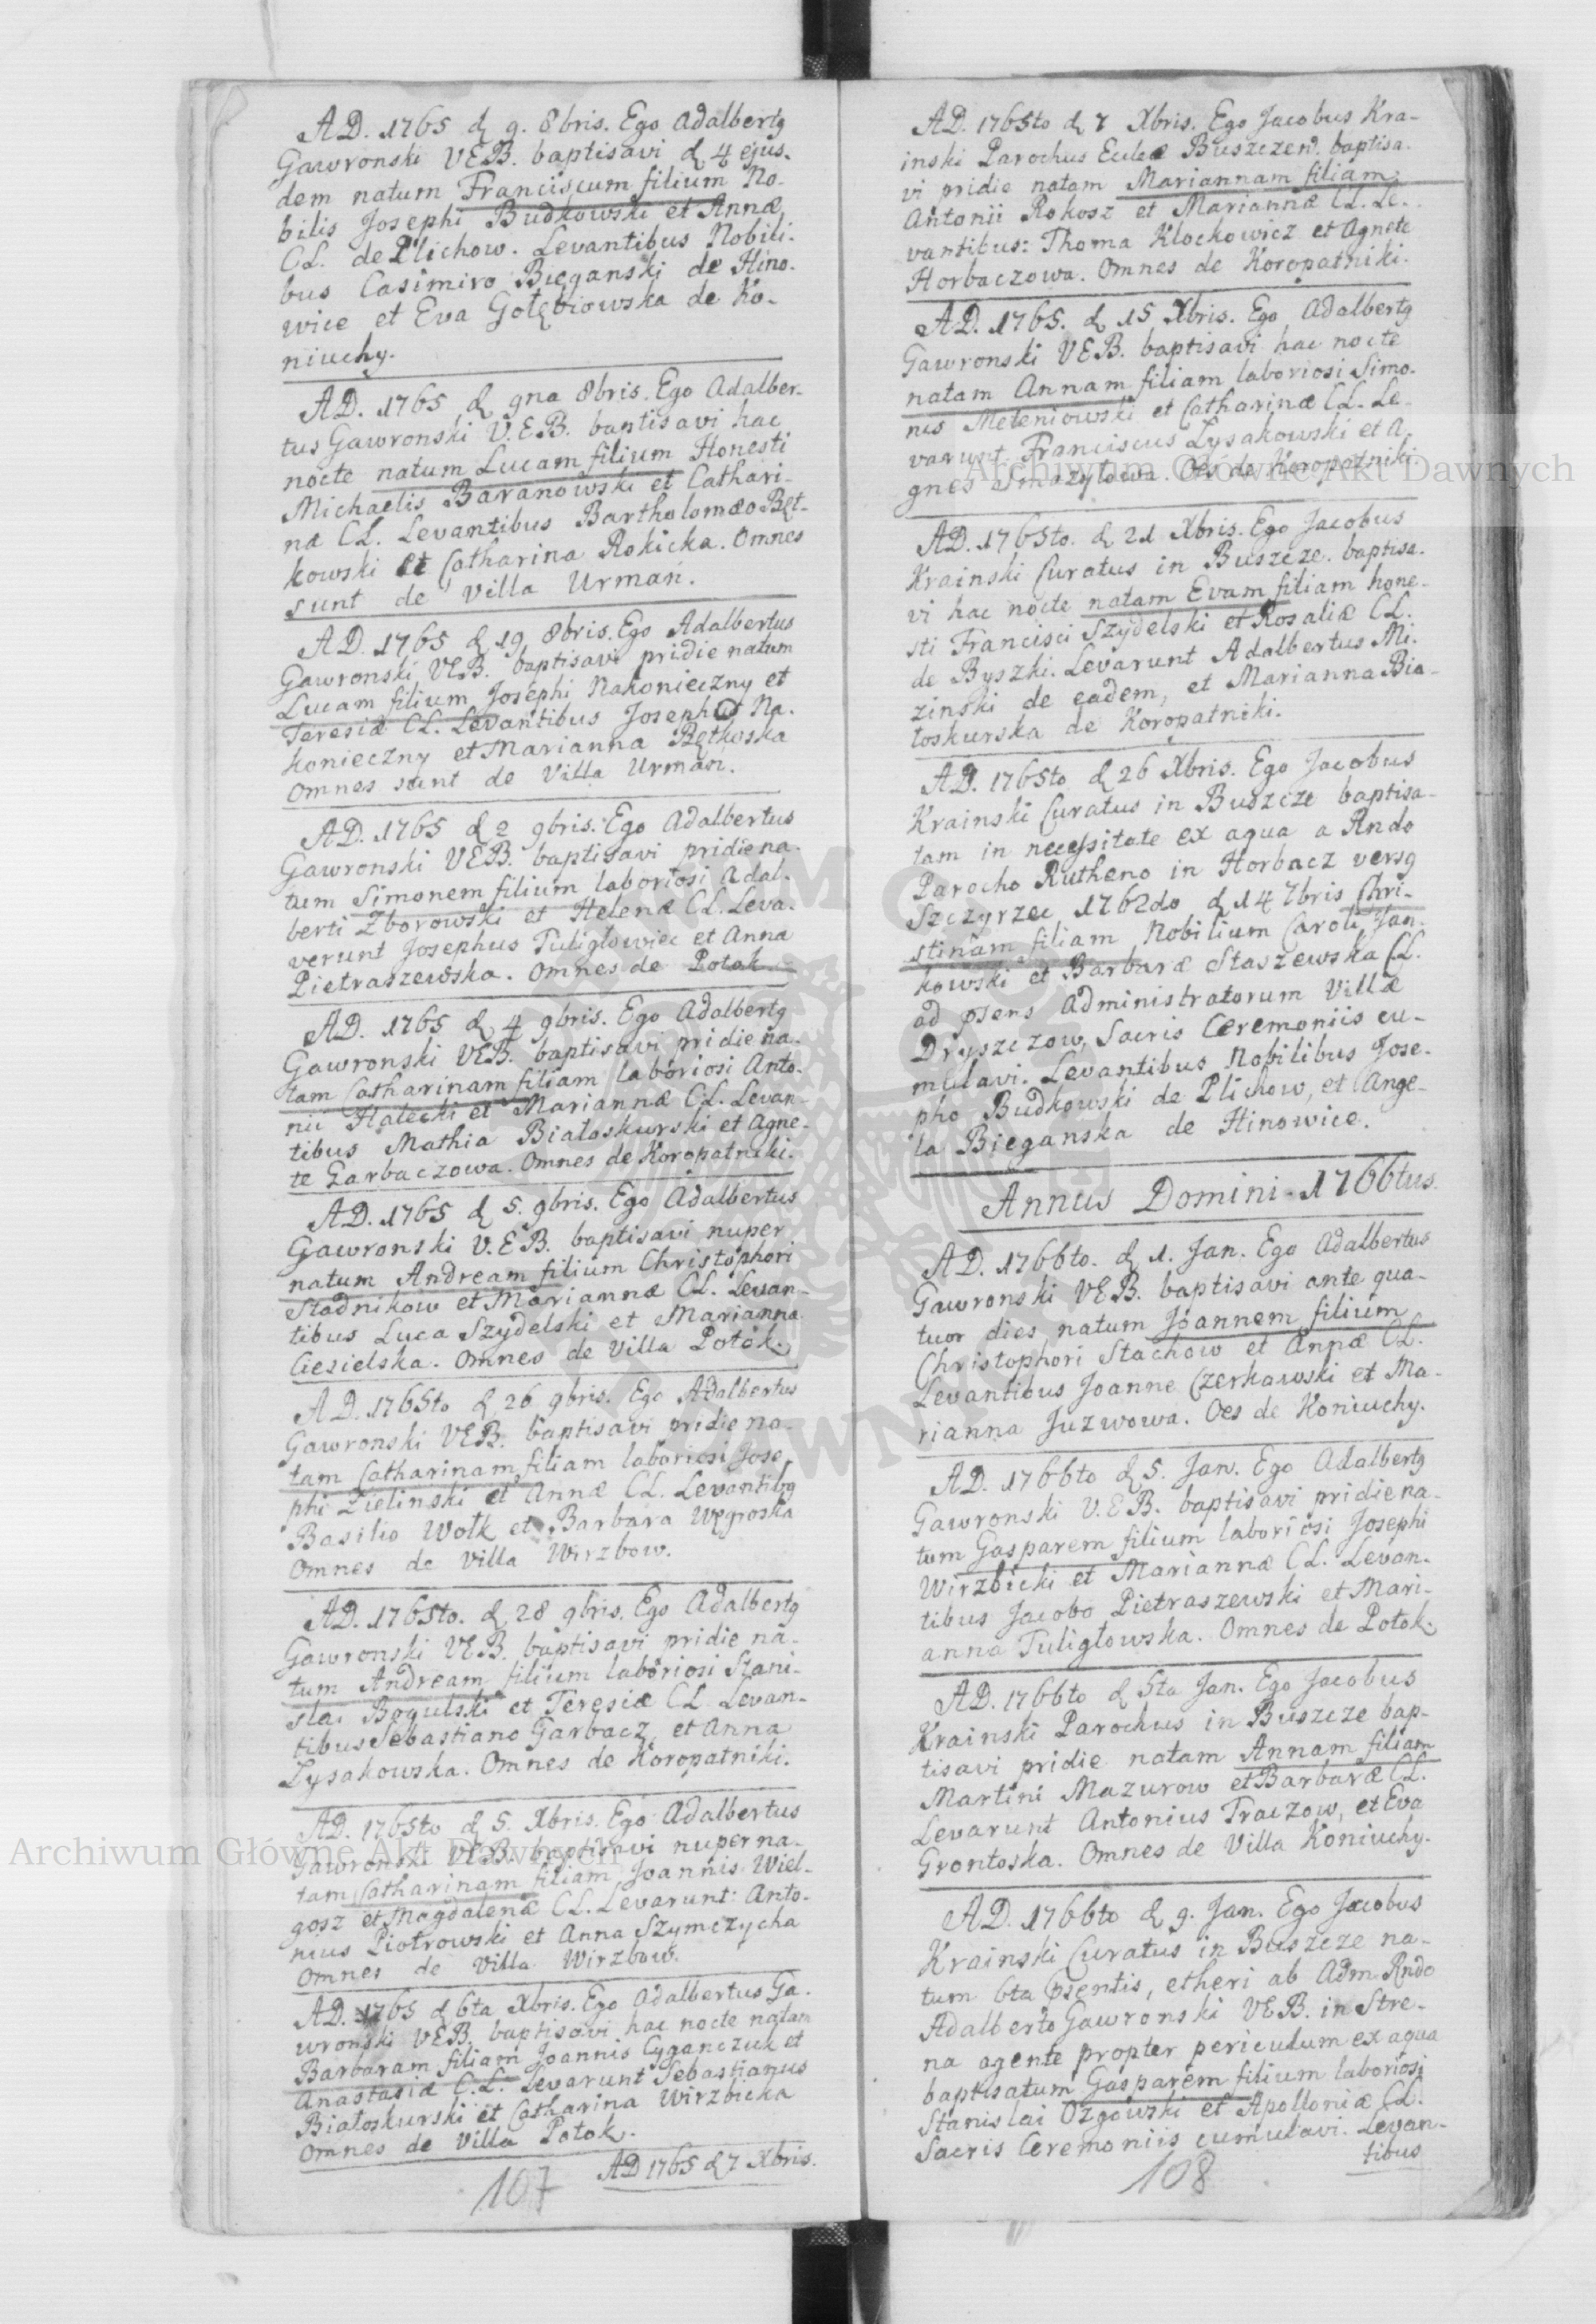 AD. 1765 d 9. 8bris. Ego Adalbertq
Gawronski VEB. baptisavi d 4 ejus-
dem natum Franciscum filium No-
bilis Josephi Budkowski et Annæ
CL. de Plichow. Levantibus Nobili-
bus Casimiro Bieganski de Hino-
wice et Eva Gołębiowska de Ko-
niuchy.
AD. 1765 d 9na 8bris. Ego Adalber-
tus Gawronski V.E.B. baptisavi hac
nocte natum Lucam filium Honesti
Michaelis Baranowski et Cathari-
næ CL. Levantibus Bartholomæo Bęt-
kowski et Catharina Rokicka. Omnes
sunt de Villa Urmań.
AD. 1765 d 19 8bris. Ego Adalbertus
Gawronski VEB. baptisavi pridie natum
Lucam filium Josephi Nakonieczny et
Teresiæ CL. Levantibus Josepho Na-
konieczny et Marianna Bętkoska
Omnes sunt de Villa Urmań.
AD. 1765 d 2 9bris. Ego Adalbertus
Gawronski VEB. baptisavi pridie na-
tum Simonem filium laboriosi Adal-
berti Zborowski et Helenæ CL. Leva-
verunt Josephus Tuligłowiec et Anna
Pietraszewska. Omnes de Potok
AD. 1765 d 4 9bris. Ego Adalbertq
Gawronski VEB. baptisavi pridie na-
tam Catharinam filiam laboriosi Anto-
nii Halecki et Mariannæ CL. Levan-
tibus Mathia Białoskurski et Agne-
te Garbaczowa. Omnes de Koropatniki.
AD. 1765 d 5. 9bris. Ego Adalbertus
Gawronski V.E.B. baptisavi nuper
natum Andream filium Christophori
Stadnikow et Mariannæ CL. Levan-
tibus Luca Szydelski et Marianna
Ciesielska. Omnes de Villa Potok.
AD. 1765to d 26 9bris. Ego Adalbertus
Gawronski VEB. baptisavi pridie na-
tam Catharinam filiam laboriosi Jose-
phi Zielinski et Annæ CL. Levantibq
Basilio Wołk et Barbara Węgroska
Omnes de Villa Wirzbow.
AD. 1765to. d 28 9bris. Ego Adalbertq
Gawronski VEB. baptisavi pridie na-
tum Andream filium laboriosi Stani-
slai Bogulski et Teresiæ CL Levan-
tibus Sebastiano Garbacz et Anna
Lysakowska. Omnes de Koropatniki.
AD. 1765to d 5. Xbris. Ego Adalbertus
Gawronski VEB. baptisavi nuper na-
tam Catharinam filiam Joannis Wiel-
gosz et Magdalenæ CL. Levarunt: Anto-
nius Piotrowski et Anna Szymczycha
Omnes de Villa Wirzbow.
AD. 1765 d 6ta Xbris. Ego Adalbertus Ga-
wronski VEB. baptisavi hac nocte natam
Barbaram filiam Joannis Cyganczuk et
Anastasiæ C.L. Levarunt Sebastianus
Białoskurski et Catharina Wirzbicka
Omnes de Villa Potok.
AD 1765 d 7 Xbris.
107
AD. 1765to d 7 Xbris. Ego Jacobus Kra-
inski Parochus Ecclæ Buszczen. baptisa-
vi pridie natam Mariannam filiam
Antonii Rokosz et Mariannæ CL. Le-
vantibus: Thoma Klockowicz et Agnete
Horbaczowa. Omnes de Koropatniki.
AD. 1765. d 15 Xbris. Ego Adalbertq
Gawronski VEB. baptisavi hac nocte
natam Annam filiam laboriosi Simo-
nis Meleniowski et Catharinæ CL. Le-
varunt Franciscus Lysakowski et A-
gnes Smazytowa. Oes de Koropatniki.
AD. 1765to. d 21 Xbris. Ego Jacobus
Krainski Curatus in Buszcze. baptisa-
vi hac nocte natam Evam filiam hone-
sti Francisci Szydelski et Rosaliæ CL.
de Byszki. Levarunt Adalbertus Mi-
zinski de eadem, et Marianna Bia-
łoskurska de Koropatniki.
AD. 1765to d 26 Xbris. Ego Jacobus
Krainski Curatus in Buszcze baptisa-
tam in necessitate ex aqua a Rndo
Parocho Rutheno in Horbacz versq
Szczyrzec 1762do d 14 7bris Chri-
stinam filiam Nobilium Caroli Jan-
kowski et Barbaræ Staszewska CL.
ad psens Administratorum Villæ
Dryszczow, Sacris Ceremoniis cu-
mulavi. Levantibus Nobilibus Jose-
pho Budkowski de Plichow, et Ange-
la Bieganska de Hinowice.
Annus Domini 1766tus.
AD. 1766to. d 1. Jan. Ego Adalbertus
Gawronski VEB. baptisavi ante qua-
tuor dies natum Joannem filium
Christophori Stachow et Annæ CL.
Levantibus Joanne Czerkawski et Ma-
rianna Juzwowa. Oes de Koniuchy.
AD. 1766to d 5. Jan. Ego Adalbertq
Gawronski V.E.B. baptisavi pridie na-
tum Gasparem filium laboriosi Josephi
Wirzbicki et Mariannæ CL. Levan-
tibus Jacobo Pietraszewski et Mari-
anna Tuligłowska. Omnes de Potok.
AD. 1766to d 5ta Jan. Ego Jacobus
Krainski Parochus in Buszcze bap-
tisavi pridie natam Annam filiam
Martini Mazurow et Barbaræ CL.
Levarunt Antonius Traczow, et Eva
Grontoska. Omnes de Villa Koniuchy.
AD. 1766to d 9. Jan. Ego Jacobus
Krainski Curatus in Buszcze na-
tum 6ta psentis, et heri ab Adm Rndo
Adalberto Gawronski VEB. in Stre-
na agente propter periculum ex aqua
baptisatum Gasparem filium laboriosi
Stanislai Ozgowski et Apolloniæ CL.
Sacris Ceremoniis cumulavi. Levan-
tibus
108
Archiwum Główne Akt Dawnych
Archiwum Główne Akt Dawnych